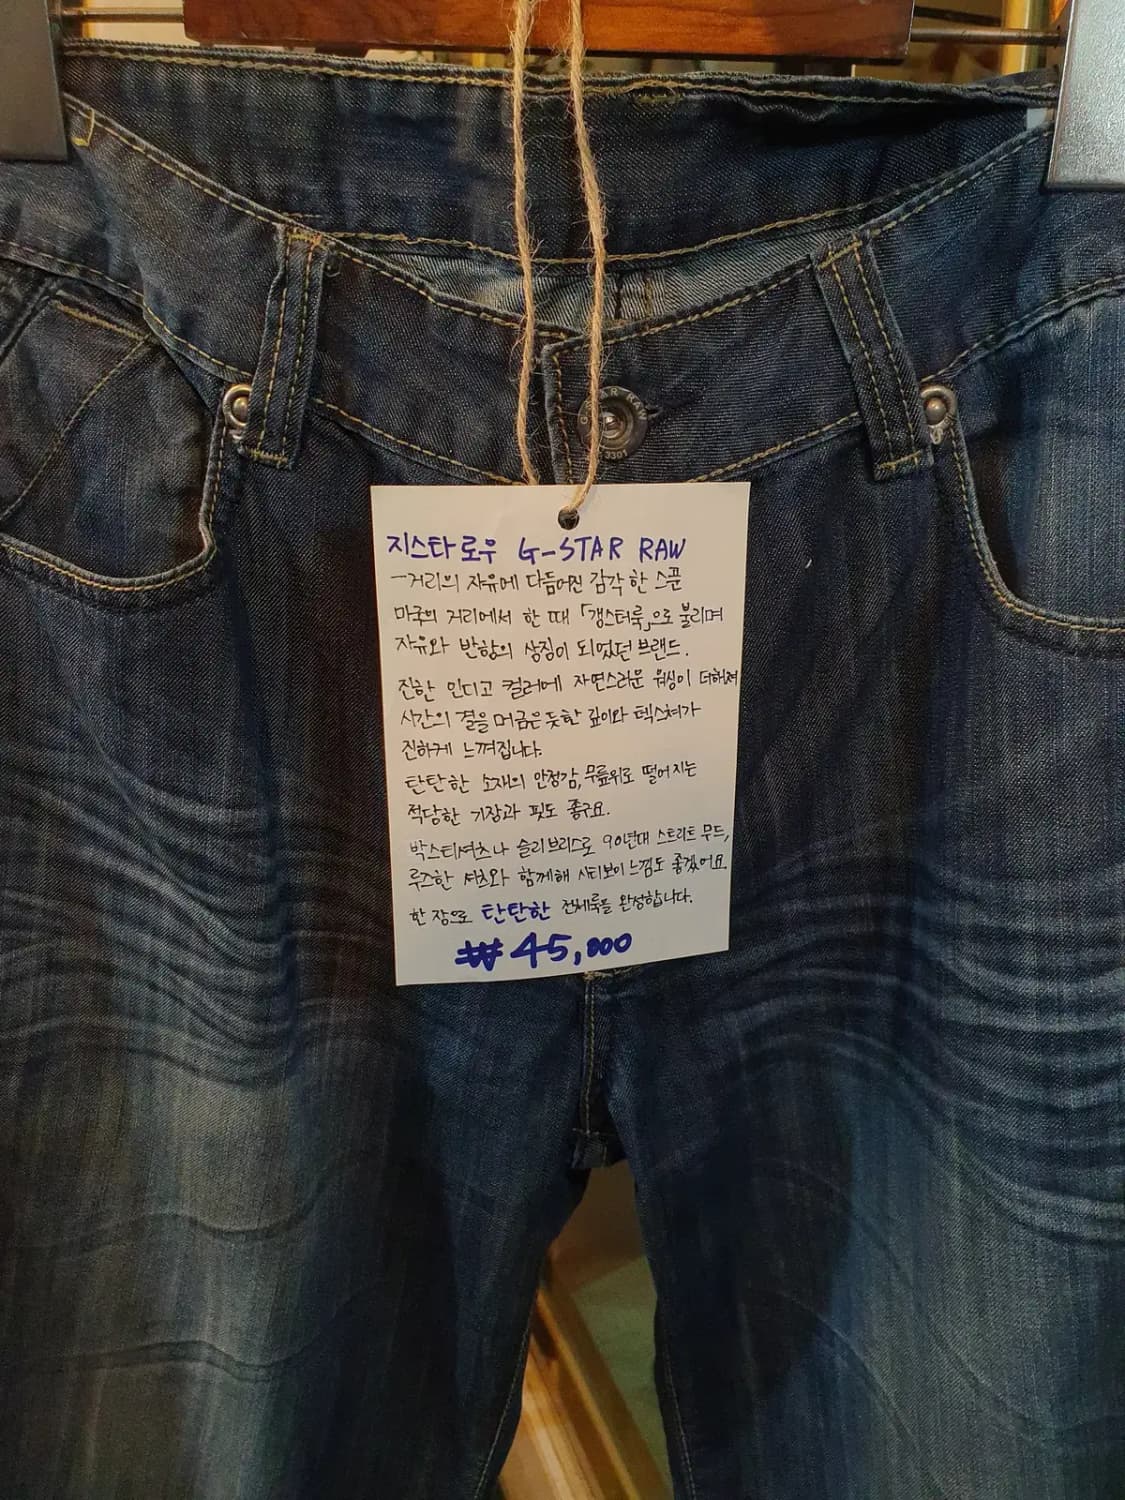 지스타로우 G-STAR RAW
-거리의 자유에 다듬어진 감각 한 스푼
미국의 거리에서 한 때 「갱스터룩」으로 불리며
자유와 반항의 상징이 되었던 브랜드.
진한 인디고 컬러에 자연스러운 워싱이 더해져
시간의 결을 머금은 듯한 깊이와 텍스쳐가
진하게 느껴집니다.
탄탄한 소재의 안정감, 무릎위로 떨어지는
적당한 기장과 핏도 좋구요.
박스티셔츠나 슬리브리스로 90년대 스트리트 무드,
루즈한 셔츠와 함께해 시티보이 느낌도 좋겠어요.
한 장으로 탄탄한 전체룩을 완성합니다.
₩45,000